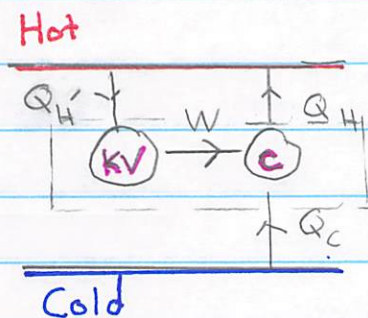 Hot
Q_H' W Q_H
KV C
Q_C
Cold